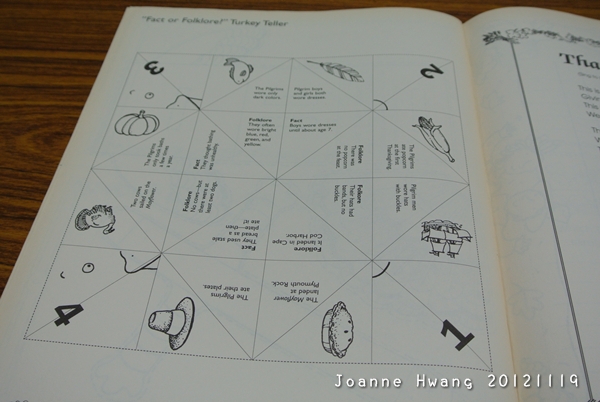 "Fact or Folklore?" Turkey Teller
3
2
The Pilgrims
wore only
dark colors.
Pilgrim boys
and girls both
wore dresses.
Folklore
They often
wore bright
blue, red,
green, and
yellow.
Fact
Boys wore dresses
until about age 7.
The Pilgrims
only took baths
a few times
a year.
Fact
They thought bathing
was unhealthy.
Folklore
There was
no popcorn
at the feast.
The Pilgrims
ate popcorn
at the first
Thanksgiving.
Two cows
sailed on the
Mayflower.
Folklore
No cows—but
there were at
least two dogs.
Folklore
Their hats had
bands, but no
buckles.
Pilgrim men
wore hats
with buckles.
Fact
They used stale
bread as a
plate—then
ate it!
Folklore
It landed in Cape
Cod Harbor.
The Pilgrims
ate their plates.
The Mayflower
landed at
Plymouth Rock.
4
1
Tha
This is
Joanne Hwang 20121119